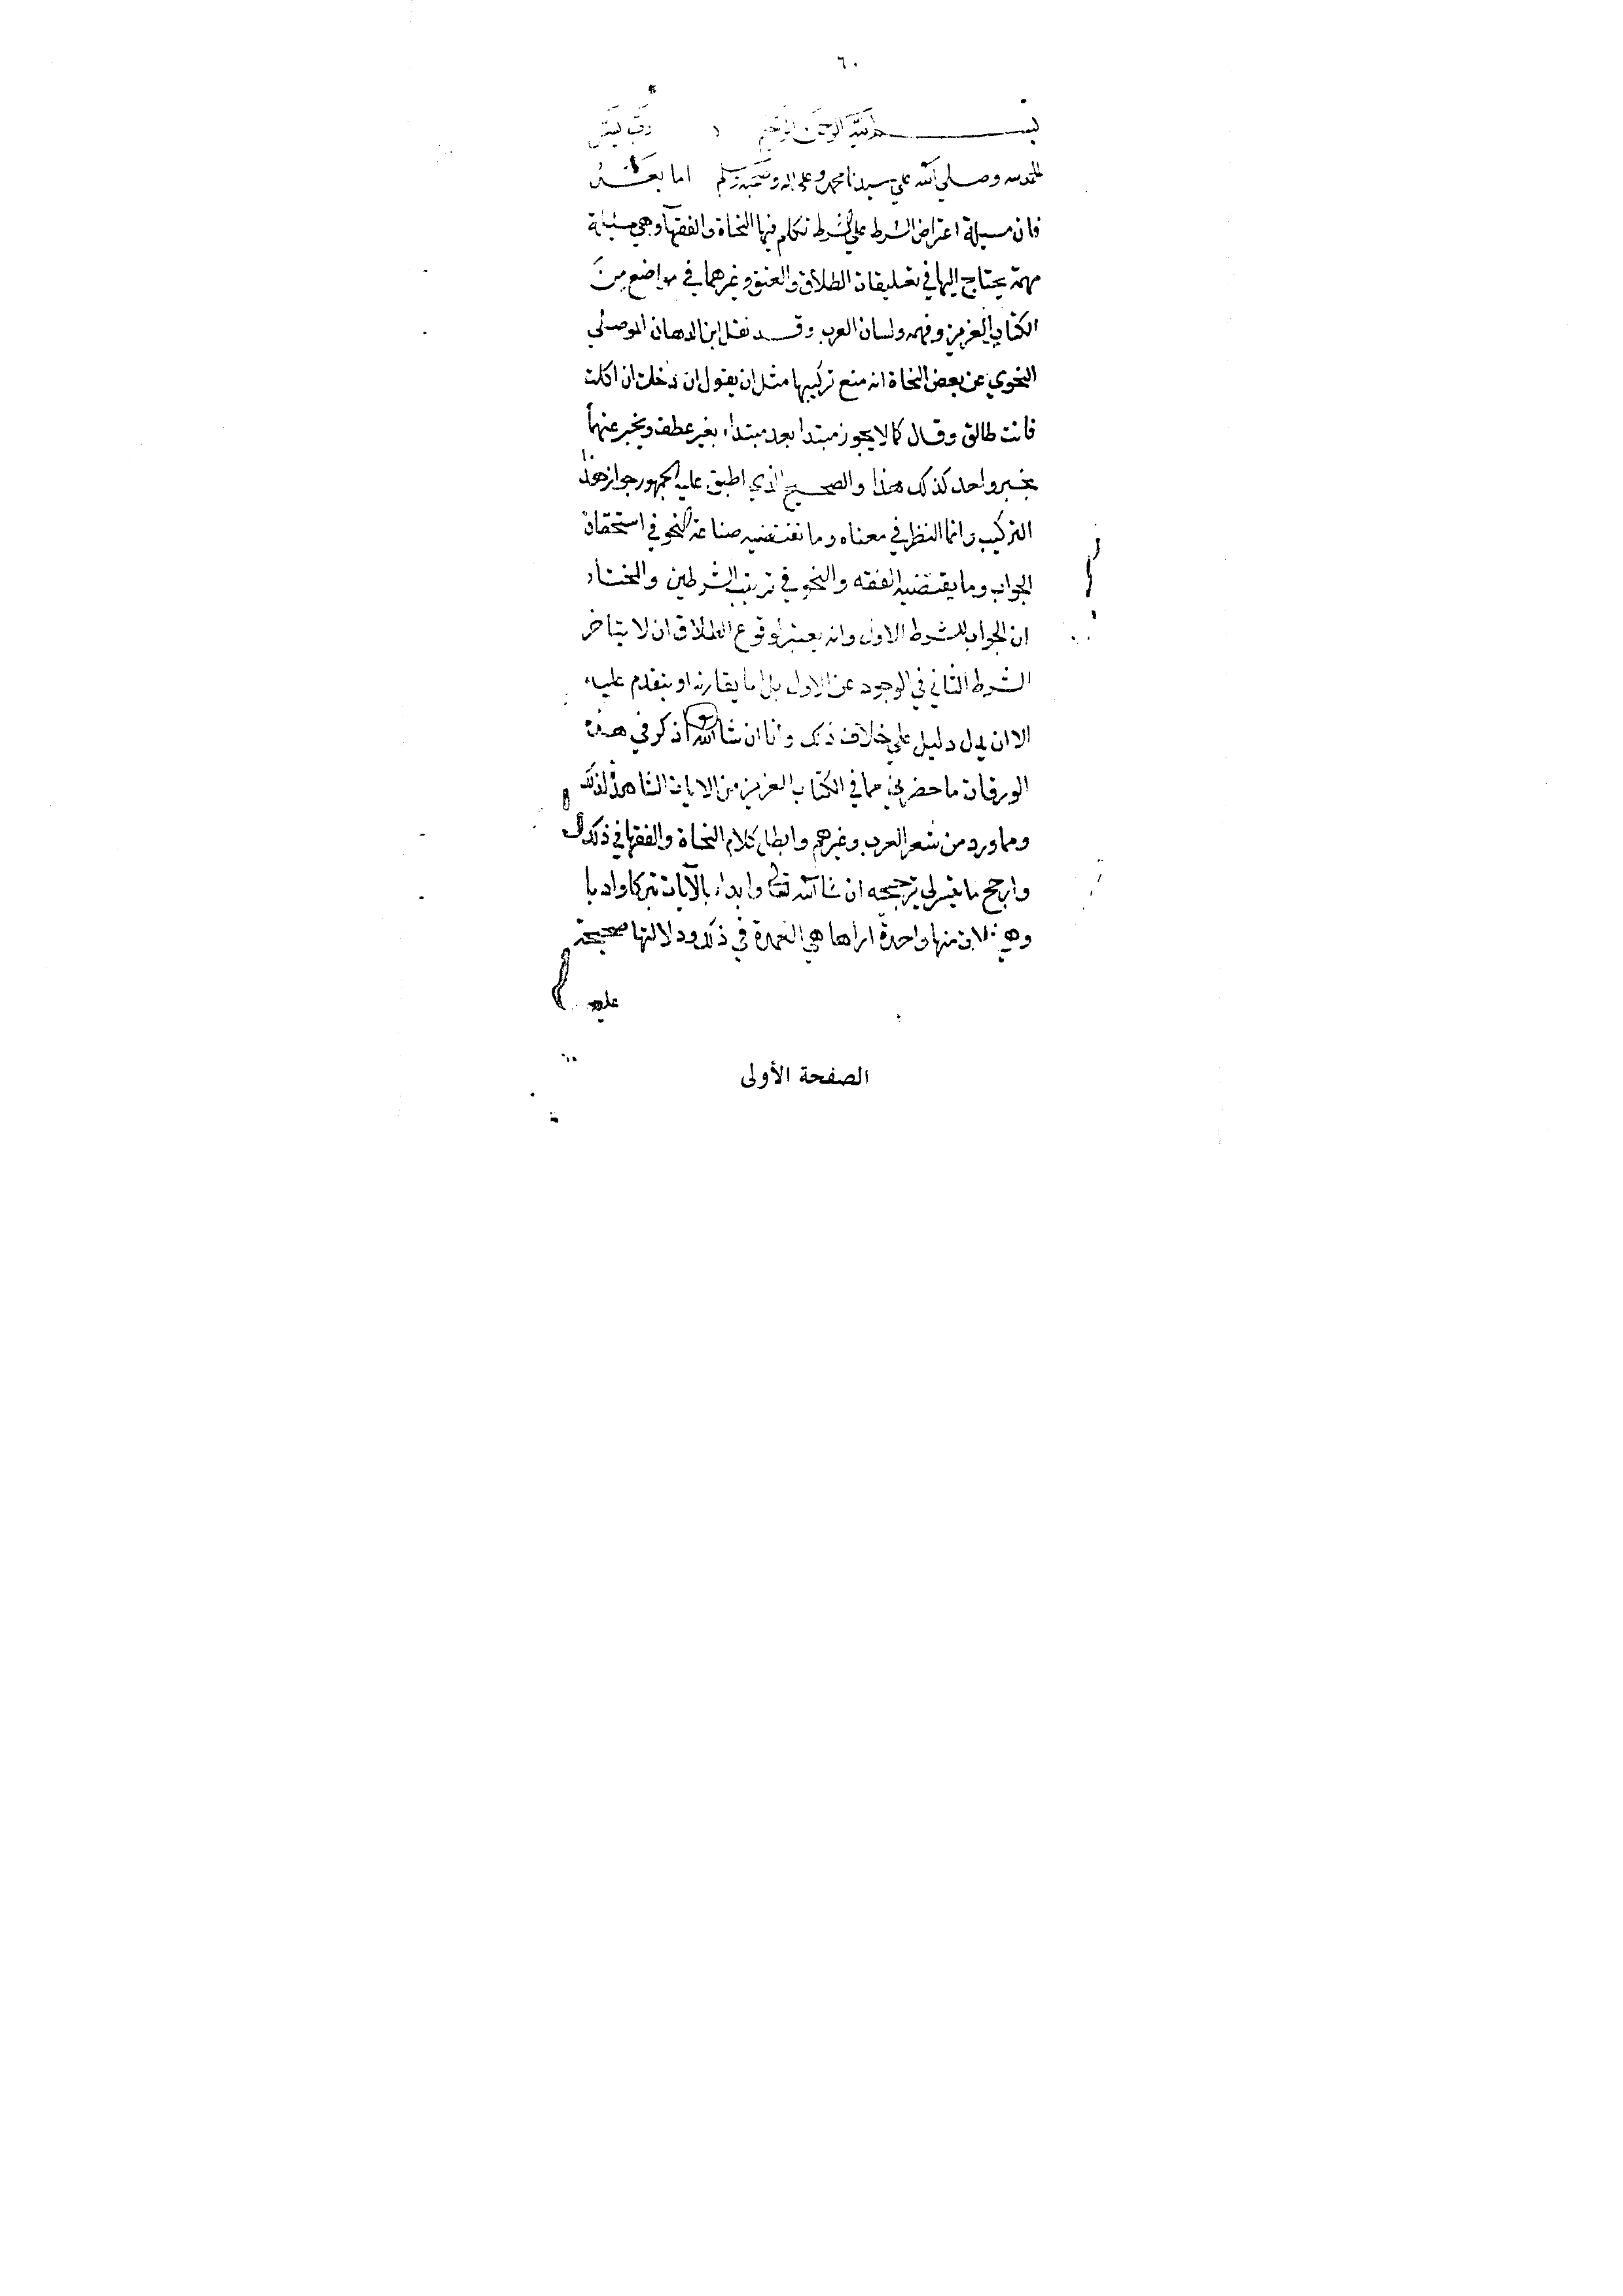 ٦٠
بسم الله الرحمن الرحيم رب يسر
الحمد لله وصلي الله علي سيدنا محمد وعلى اله وصحبه وسلم اما بعد
فان مسيلة اعتراض الشرط علي الشرط تكلم فيها النحاة والفقهآ وهي مسئلة
مهمة يحتاج اليها في تعليقات الطلاق والعتق وغيرهما في مواضع من
الكتاب العزيز وفهمه ولسان العرب وقد نقل ابن الدهان الموصلي
النحوي عن بعض النحاة انه منع تركيبها مثل ان يقول ان دخلت ان اكلت
فانت طالق وقال كما لا يجوز مبتدا بعد مبتداء بغير عطف ويخبر عنهما
بخبر واحد كذلك هذا والصحيح الذي اطبق عليه الجمهور جواز هذا
التركيب وانما النظر في معناه وما تقتضيه صناعة النحو في استحقاق
الجواب وما يقتضيه الفقه والنحو في ترتيب الشرطين والمختار
ان الجواب للشرط الاول وانه يعتبر لوقوع الطلاق ان لا يتاخر
الشرط الثاني في الوجود عن الاول بل اما يقارنه او يتقدم عليه
الا ان يدل دليل علي خلاف ذلك وانا ان شا الله اذكر في هذه
الورقات ما حضرني مما في الكتاب العزيز من الايات الشاهدة لذلك
ومما ورد من شعر العرب وغيرهم وابطل كلام النحاة والفقها في ذلك
وارجح ما تيسر لي ترجيحه ان شا الله تعالى وابداء بالآيات تبركا وادبا
وهي ثلاث منها واحدة اراها هي العمدة في ذلك ودلالتها صحيحة
عليه
الصفحة الأولى